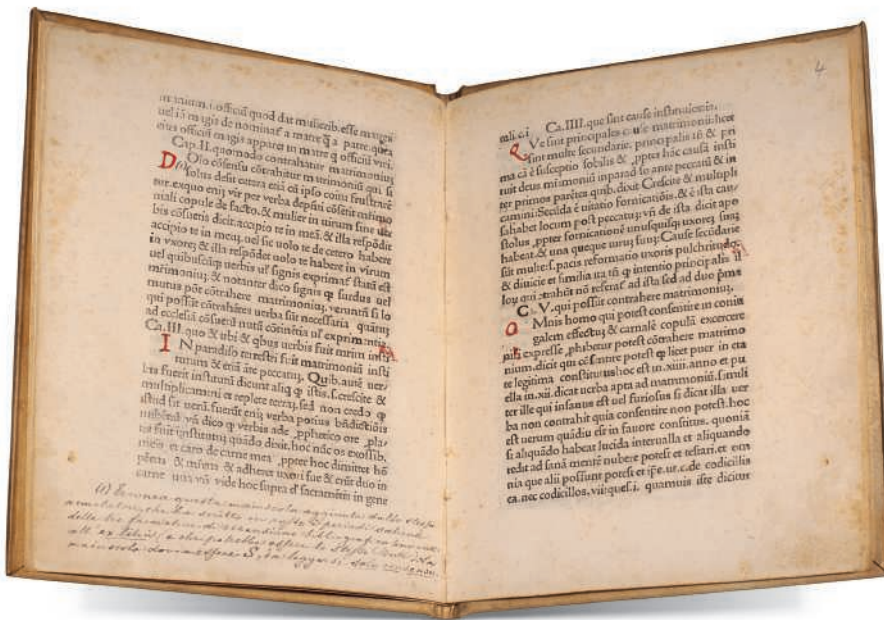 monium. i. officiū quod dat mulierib. esse matres
uel iā magis de nominat a matre q̄ a patre. quia
eius officiū magis apparet in matre q̄ officiū viri.
Cap. II. quomodo contrahatur matrimoniuʒ
Dolo cōsensu cōtrahitur matrimoniū qui si
solus desit cetera etiā cū ipso coitu frustrāt
tur. exquo eniʒ vir per verba
niali copule de facto. & mulier in uirum sine uer
bis cōsuetis dicit. accipio te in meā. & illa respōdit
accipio te in meuʒ. uel sic uolo te de cetero habere
in vxoreʒ & illa respōdet uolo te habere in virum
uel quibuscūqʒ uerbis ul' signis exprimāt statū est
mr̄imoniuʒ. & notanter dico signis qꝫ surdus uel
mutus pōt cōtrahere matrimoniuʒ. veruntū si lo
qui possūt cōtrahētes uerba sūt necessaria quātuʒ
ad ecclesiā
Ca. III. quo & ubi & qbus uerbis fuit mr̄im insti
IN paradiso terestri fuit matrimoniū insti
tutum & etiā āte peccatuʒ. Quib. autē uer
bis fuerit institutū dicunt aliq qꝫ istis. s. crescite &
multiplicamini et replete terraʒ. sed non credo qꝫ
istud sit uerū. fuerūt eniʒ verba potius bn̄dictiōis
vn̄ dico qꝫ verbis ade ꝓphetico ore
tus fuit institutuʒ quādo dixit. hoc nūc os exossib.
meis et caro de carne mea ꝓpter hoc dimittet hō
pr̄em & mr̄em & adherebit uxori sue & erūt duo in
carne una vn̄ vide hoc supra d' sacramētis in gene
(1) Erronea questa maiuscola aggiunta dallo stesso
annotatore, che ha scritto in
delle
all'ex libris, e che potrebbe essere lo stesso Conte: La
maiuscola dovria essere S, e leggersi, solo consensu.
4
rali. c. i Ca. IIII. que sint cause institutionis.
QVe sunt principales cause matrimonii: licet
sint multe secundarie. principalis tn̄ & pri
ma cā ē susceptio sobolis & ꝓpter hāc causā insti
tuit deus mr̄imoniū inparadiso ante peccatū & in
ter primos parētes quib. dixit. Crescite & multipli
camini: Secūda ē uitatio fornicatiōis. & ē ista cau
sa habet locum post peccatuʒ: vn̄ de ista dicit apo
stolus ꝓpter fornicationē unusquisqʒ uxoreʒ suaʒ
habeat. & una queque uiruʒ suuʒ: Cause secūdarie
sūt multe. s. pacis reformatio uxoris pulchritudo.
& diuicie et familia ita tn̄ qꝫ intentio principalis il
loꝝ qui ꝯtrahūt nō referat ad ista sed ad duo prima
Ca. V. qui possit contrahere matrimoniuʒ.
OMnis homo qui potest consentire in coniu
galem effectuʒ & carnalē copulā excercere
nisi expresse ꝓhibetur potest cōtrahere matrimo
nium. dicit qui cōsentire potest qꝫ licet puer in eta
te legitima constitutus hoc est in. xiiii. anno et pu
ella in. xii. dicat uerba apta ad matrimoniū. simili
ter ille qui insanus est uel furiosus si dicat illa uer
ba non contrahit quia consentire non potest. hoc
est uerum quādiu est in furore constitus. quoniā
si aliquādo habeat lucida interualla et aliquando
redit ad sanā mentē nubere potest et testari. et om
nia que alii possunt potest et ip̄e. ut. c. de codicillis
ca. nec codicillos. vii. ques. i. quamuis iste dicitur